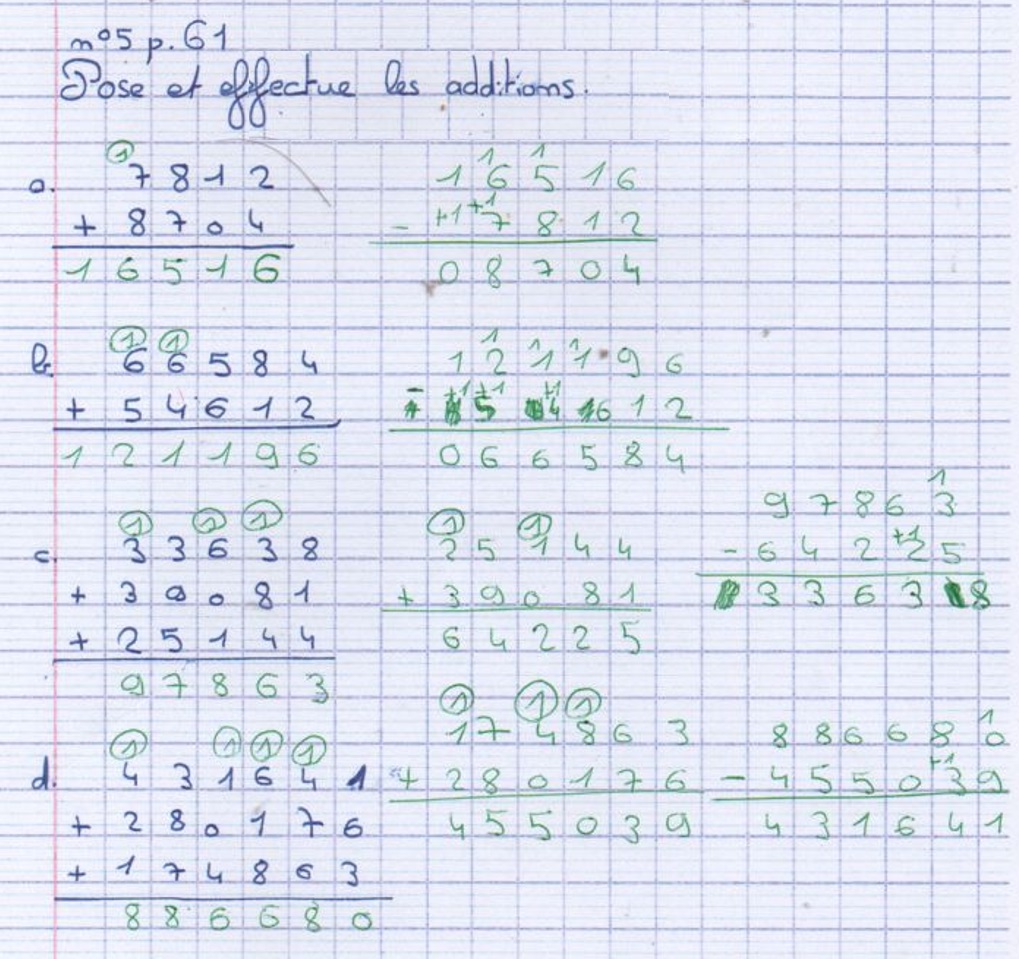 n°5 p.61
Pose et effectue les additions.
1
a. 7 8 1 2
+ 8 7 0 4
1 6 5 1 6
1 1
1 6 5 1 6
- +1 +1 7 8 1 2
0 8 7 0 4
1 1
b. 6 6 5 8 4
+ 5 4 6 1 2
1 2 1 1 9 6
1 1 1
1 2 1 1 9 6
- +1 +1 5 +1 4 6 1 2
0 6 6 5 8 4
1 1 1
c. 3 3 6 3 8
+ 3 9 0 8 1
+ 2 5 1 4 4
9 7 8 6 3
1 1
2 5 1 4 4
+ 3 9 0 8 1
6 4 2 2 5
1
9 7 8 6 3
- 6 4 2 +1 2 5
3 3 6 3 8
1 1 1 1
d. 4 3 1 6 4 1
+ 2 8 0 1 7 6
+ 1 7 4 8 6 3
8 8 6 6 8 0
1 1 1
1 7 4 8 6 3
+ 2 8 0 1 7 6
4 5 5 0 3 9
1
8 8 6 6 8 0
- 4 5 5 0 +1 3 9
4 3 1 6 4 1